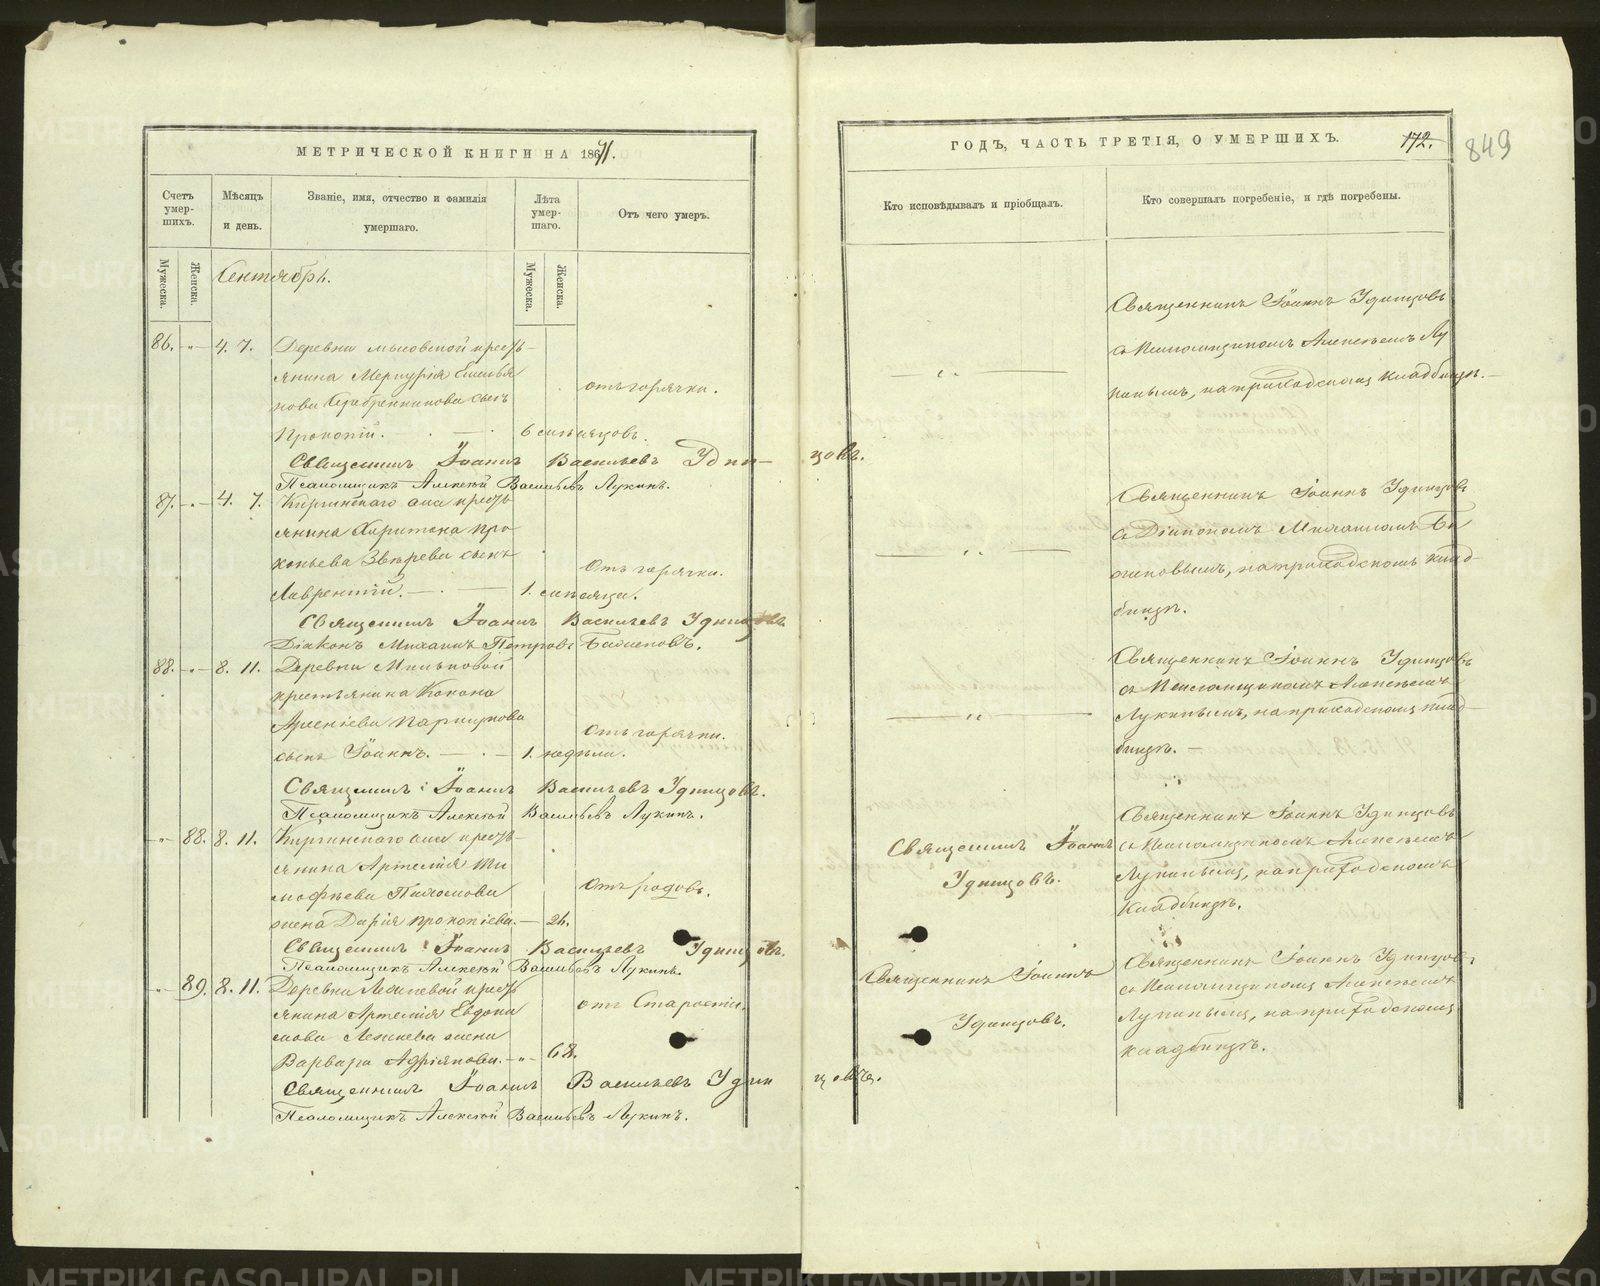 МЕТРИЧЕСКОЙ КНИГИ НА 1871.
Счетъ умер-шихъ.
Мѣсяцъ и день.
Званіе, имя, отчество и фамилія умершаго.
Лѣта умер-шаго.
Отъ чего умеръ.
Мужеска.
Женска.
Мужеска.
Женска.
Сентябрь.
86. -"- 4. 7. Деревни мысовской кресть-
янина Меркурія Емелья
нова Серебренникова сынъ
отъ горячки.
Прокопій. 6 сип мѣсяцовъ.
Священникъ Іоаннъ Васильевъ Удин-цовъ.
Псаломщикъ Алексѣй Васильевъ Лукинъ.
87. -"- 4. 7. Киргинскаго села кресть
янина Харитона Про
копьева Звѣрева сынъ
Отъ горячки.
Лаврентій. 1. мѣсяца.
Священникъ Іоаннъ Васильевъ Удинцовъ
Діаконъ Михаилъ Петровъ
88. -"- 8. 11. Деревни Мильковой
крестьянина Конона
Паршукова
Отъ горячки.
сынъ Іоаннъ. 1. недѣли.
Священникъ Іоаннъ Васильевъ Удинцовъ.
Псаломщикъ Алексѣй Васильевъ Лукинъ.
-"- 88. 8. 11. Киргинскаго села кресть-
янина Артемія Ти
мофѣева
Отъ родовъ.
жена Дарія Прокопіева. 26.
Священникъ Іоаннъ Васильевъ Удинцовъ.
Псаломщикъ Алексѣй Васильевъ Лукинъ.
-"- 89. 8. 11. Деревни кресть
янина Артемія Евдоки
мова жена
отъ Старости.
Варвара Адріянова. -"- 68.
Священникъ Іоаннъ Васильевъ Удин цовъ.
Псаломщикъ Алексѣй Васильевъ Лукинъ.
ГОДЪ, ЧАСТЬ ТРЕТІЯ, О УМЕРШИХЪ.
172.
849
Кто исповѣдывалъ и пріобщалъ.
Кто совершалъ погребеніе, и гдѣ погребены.
Священникъ Іоаннъ Удинцовъ
съ Псаломщикомъ Алексѣемъ Лу
кинымъ, на приходскомъ кладбищѣ.
Священникъ Іоаннъ Удинцовъ
съ Діакономъ Михаиломъ
на приходскомъ клад-
бищѣ.
Священникъ Іоаннъ Удинцовъ
съ Псаломщикомъ Алексѣемъ
Лукинымъ, на приходскомъ клад-
бищѣ.
Священникъ Іоаннъ
Удинцовъ.
Священникъ Іоаннъ Удинцовъ
съ Псаломщикомъ Алексѣемъ
Лукинымъ, на приходскомъ
Кладбищѣ.
Священникъ Іоаннъ
Удинцовъ.
Священникъ Іоаннъ Удинцовъ
съ Псаломщикомъ Алексѣемъ
Лукинымъ, на приходскомъ
кладбищѣ.
METRIKI.GASO-URAL.RU